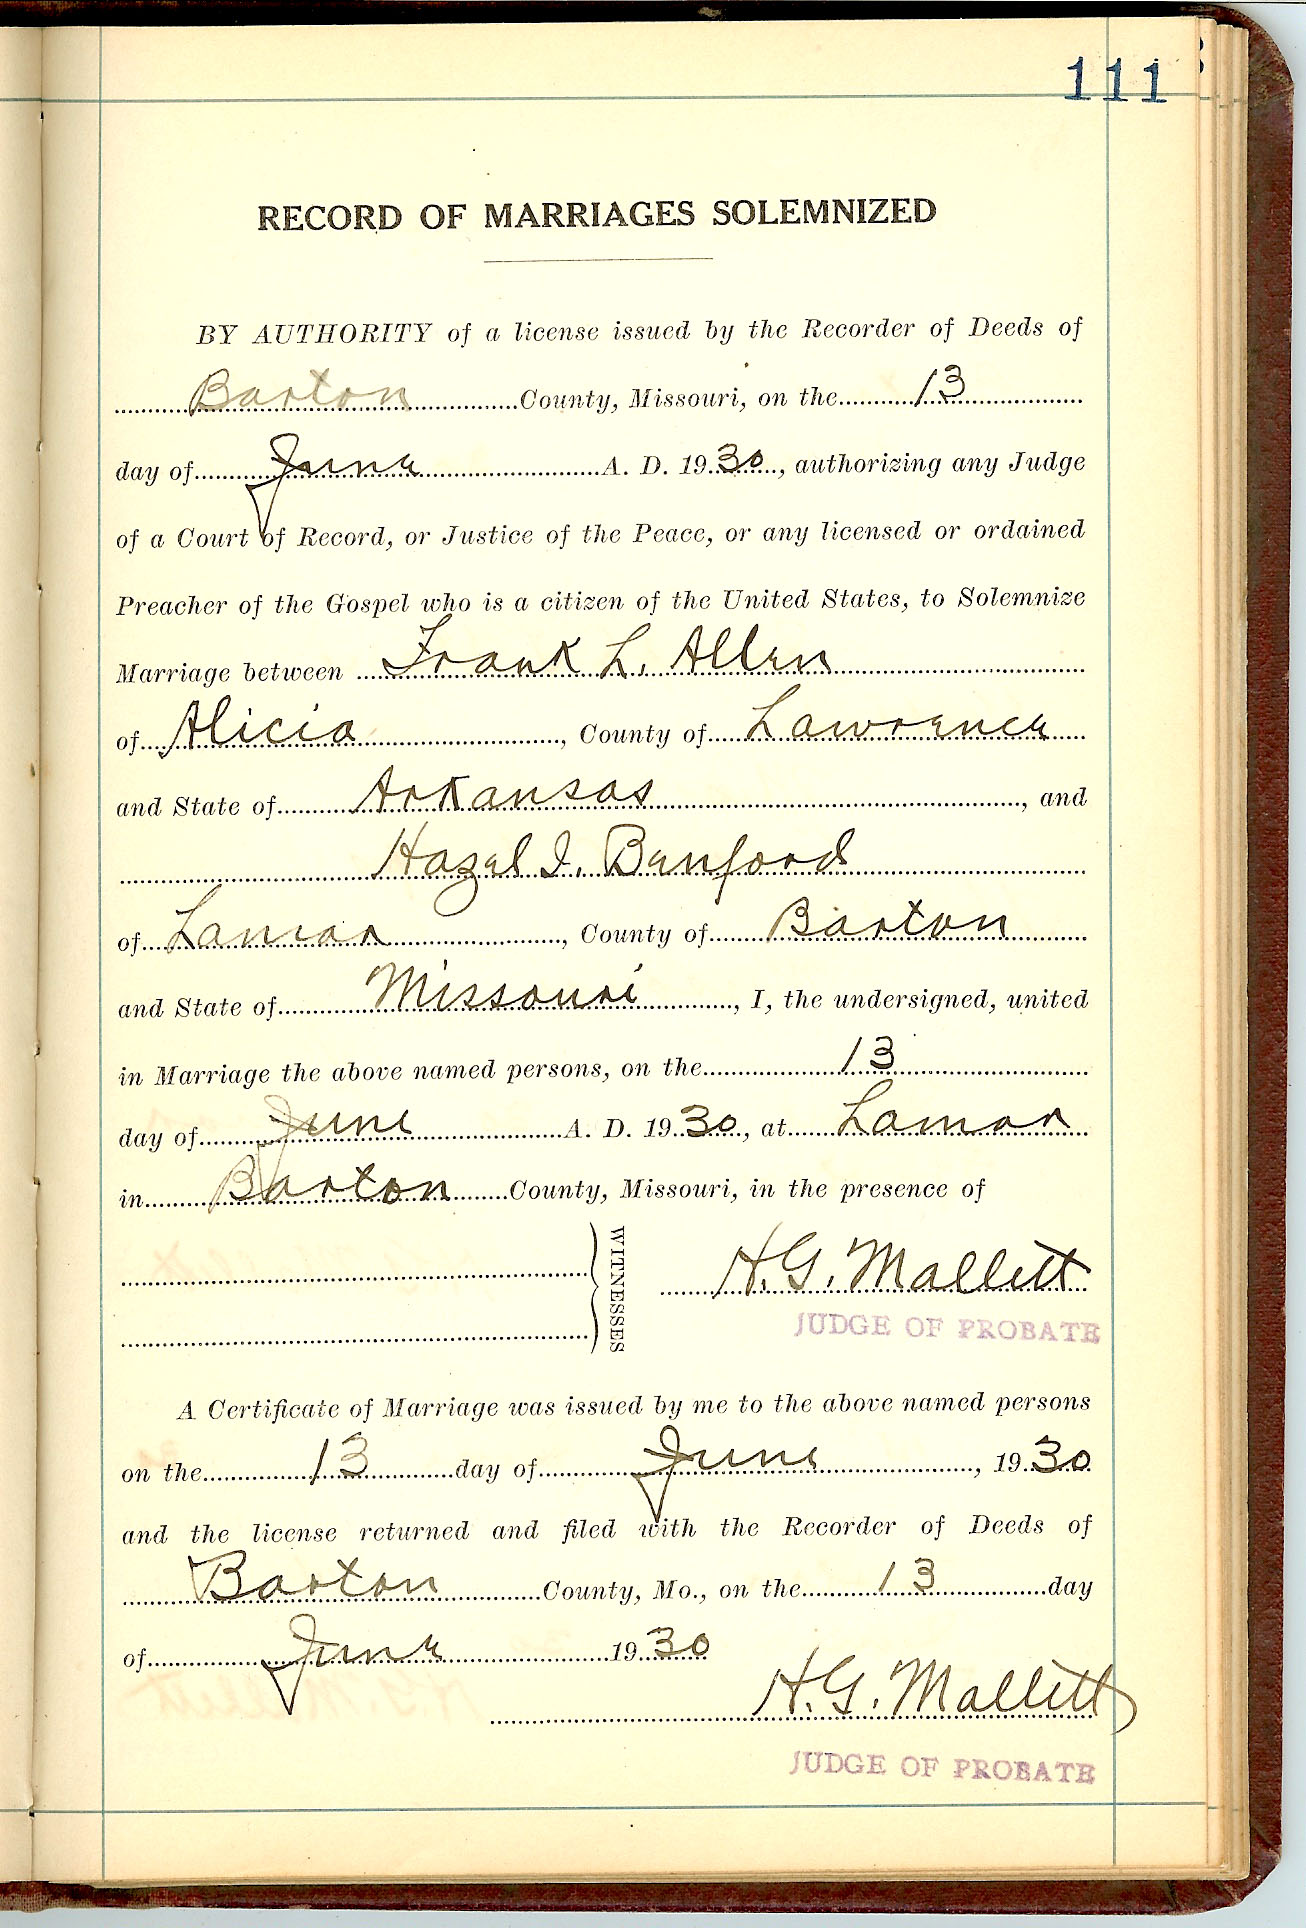 111
RECORD OF MARRIAGES SOLEMNIZED
BY AUTHORITY of a license issued by the Recorder of Deeds of
Barton County, Missouri, on the 13
day of June A. D. 1930, authorizing any Judge
of a Court of Record, or Justice of the Peace, or any licensed or ordained
Preacher of the Gospel who is a citizen of the United States, to Solemnize
Marriage between Frank L. Allen
of Alicia, County of Lawrence
and State of Arkansas, and
Hazel I. Benford
of Lamar, County of Barton
and State of Missouri, I, the undersigned, united
in Marriage the above named persons, on the 13
day of June A. D. 1930, at Lamar
in Barton County, Missouri, in the presence of
WITNESSES
H. G. Mallett
JUDGE OF PROBATE
A Certificate of Marriage was issued by me to the above named persons
on the 13 day of June, 1930
and the license returned and filed with the Recorder of Deeds of
Barton County, Mo., on the 13 day
of June 1930
H. G. Mallett
JUDGE OF PROBATE